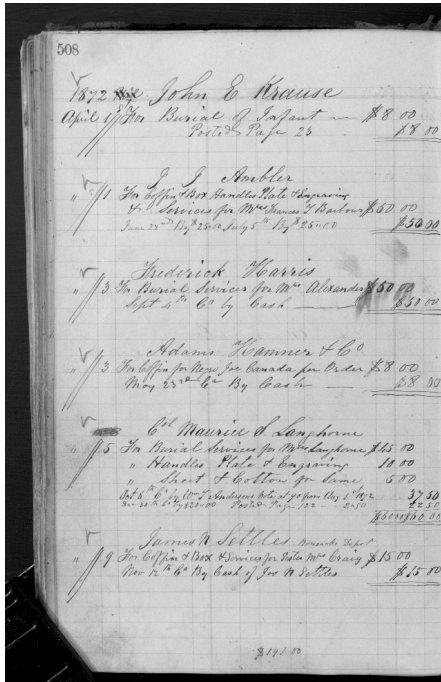 508
1872 John E Krause
April 1st For Burial of Infant $8 00
Posted Page 23 $8 00
J J Ambler
" 1 For Coffin & Box Handles Plate & Engraving
& Services for Mrs Frances T Barbour $50 00
June 22nd By $25.00 July 5th By $25.00 $50 00
Frederick Harris
" 3 For Burial Services for Mrs Alexander $50 00
Sept 4th Cr by Cash $50 00
Adams Hamner & Co
" 3 For Coffin for Negro Joe Canada per Order $8 00
May 23rd Cr By Cash $8 00
Col Maurice S Langhorne
" 5 For Burial Services for Mrs Langhorne $45 00
" Handles Plate & Engraving 10 00
" Sheet & Cotton for Same 5 00
Oct 8th Cr by Wm T Andersons note at 90 from Aug 1st 1872 37 50
Dec 20th Cr By $20.00 Posted Page 122 2.50 22 50
$60 00 $60 00
James N Settles Depot
" 9 For Coffin & Box & Services for Sister Mrs Craig $15 00
Nov 12th Cr By Cash of Jos N Settles $15 00
$191.00